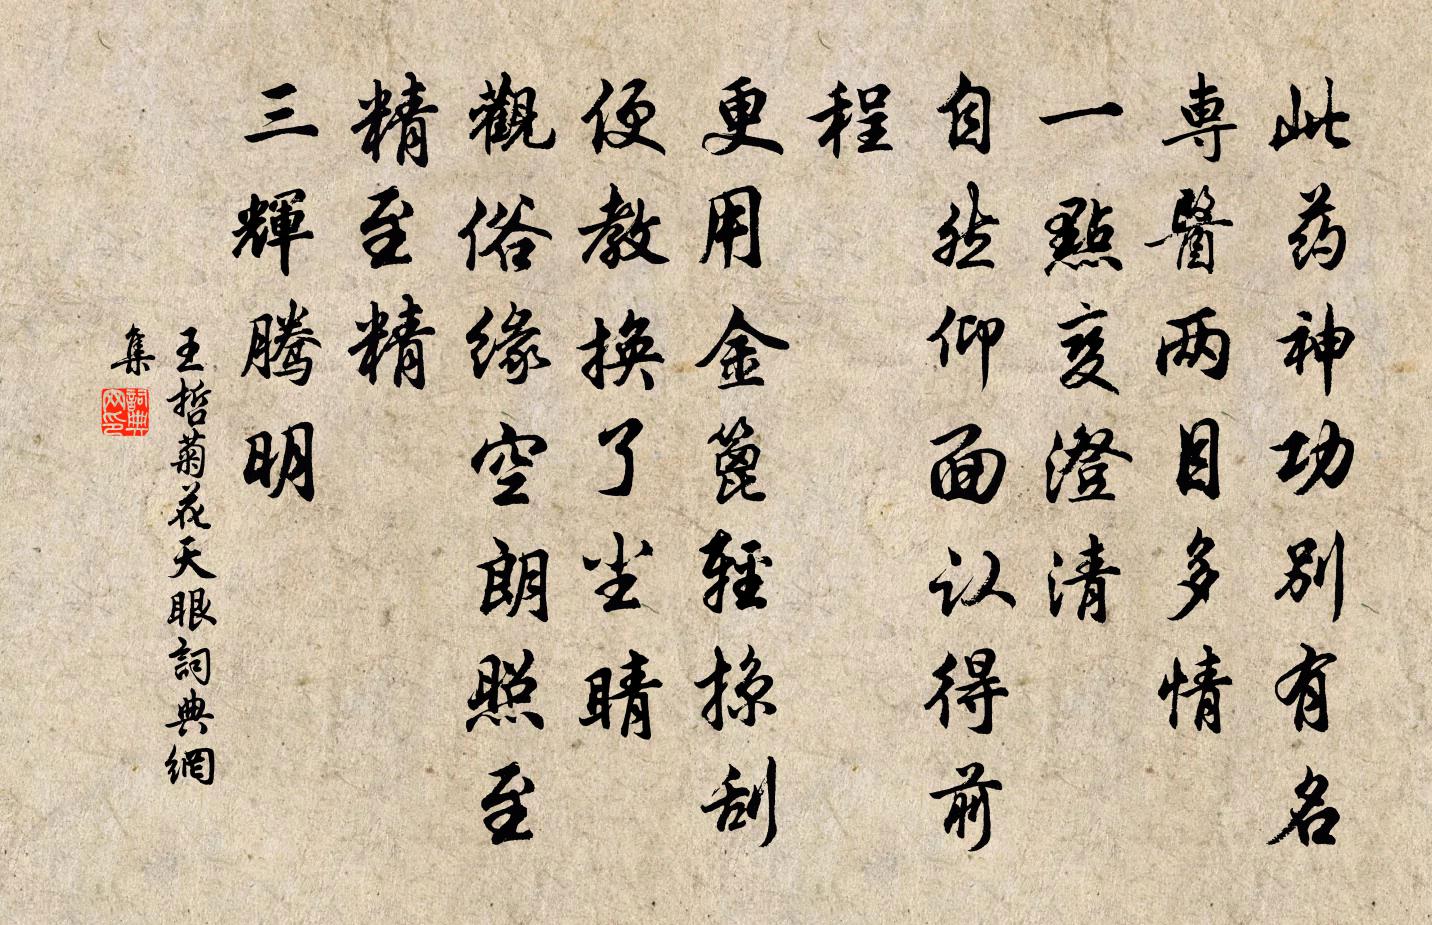 此药神功別有名
専醫两目多情
一點变澄清
自然仰面认得前
程
更用金篦輕掠刮
便教换了尘睛
觀俗缘空朗照至
精至精
三輝腾明
王哲菊花天眼詞典網
集
詞典
网印